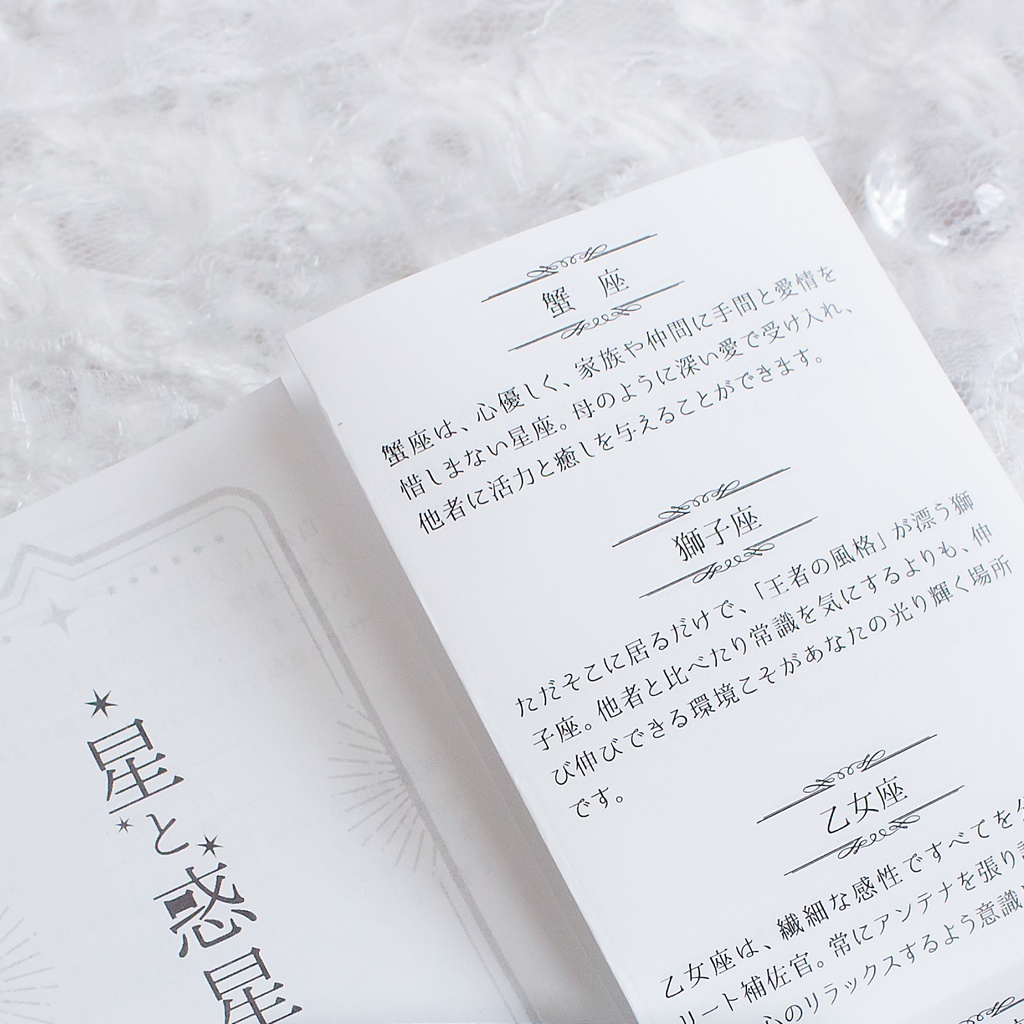 蟹座
蟹座は、心優しく、家族や仲間に手間と愛情を
惜しまない星座。母のように深い愛で受け入れ、
他者に活力と癒しを与えることができます。
獅子座
ただそこに居るだけで、「王者の風格」が漂う獅
子座。他者と比べたり常識を気にするよりも、伸
び伸びできる環境こそがあなたの光り輝く場所
です。
乙女座
乙女座は、繊細な感性ですべてを
リート補佐官。常にアンテナを張り
心のリラックスするよう意識
星と惑星